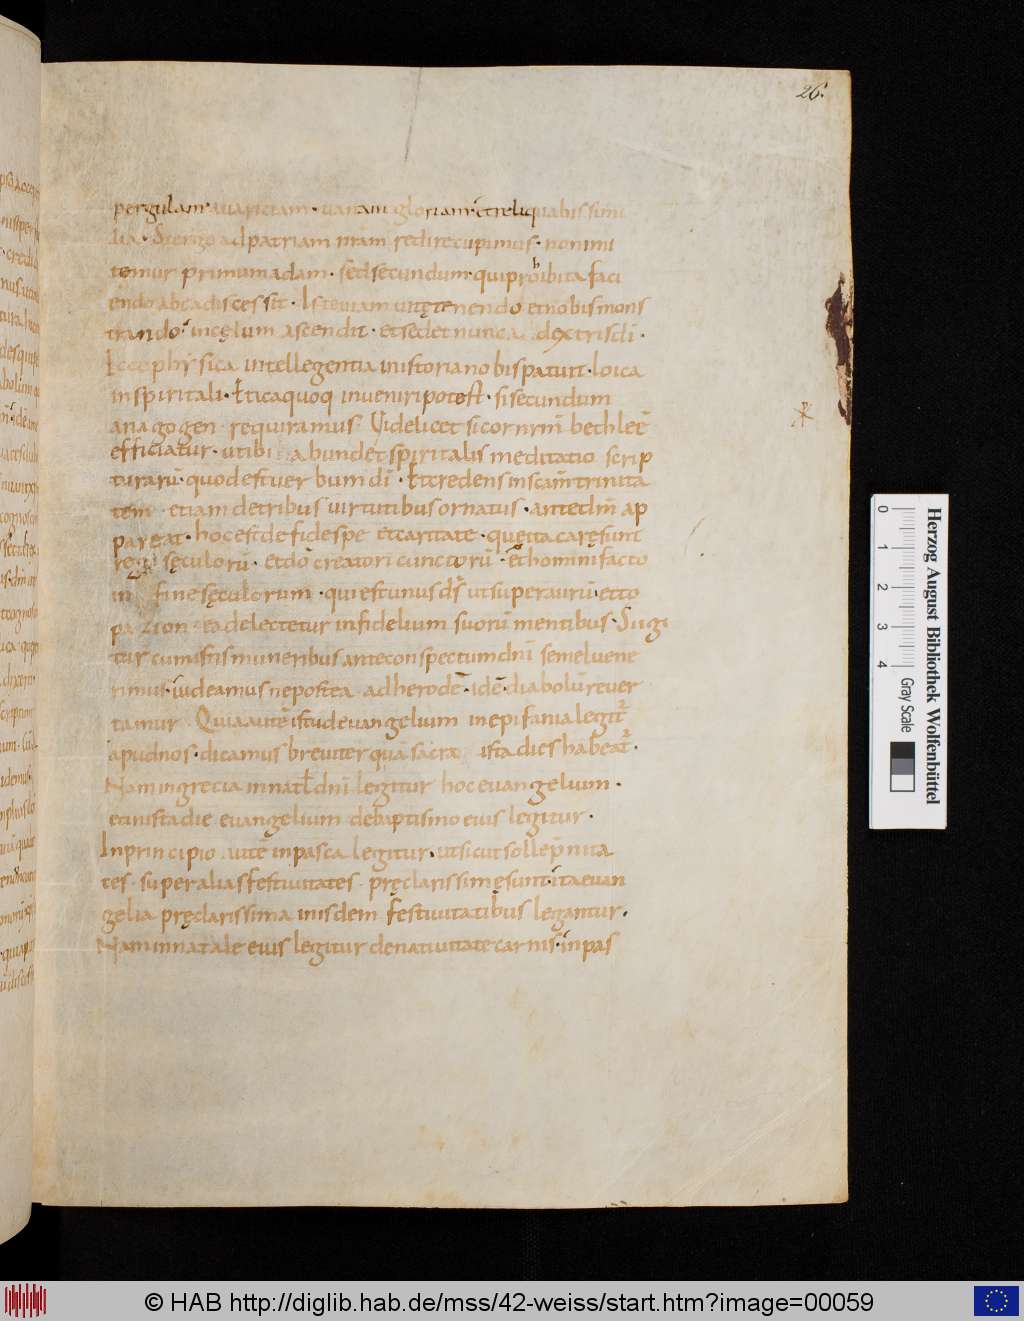 26.
per gulam avaritiam · vanam gloriam · et reliqua his simi
lia · Si ergo ad patriam nr̄am redire cupimus · non imi
temur primum adam · sed secundum · qui prohibita faci
endo abea discessit · Iste viam vitę tenendo et nobis mons
trando · in cęlum ascendit · et sedet nunc a dextris dī ·
Ecce phy sica intellegentia in istoria nobis patuit · loica
in spiritali · Ettica quoq inveniri potest · si secundum
ana gogen requiramus · Videlicet sicor nr̄m bethleē
efficiatur · ut ibi abundet spiritalis meditatio scrip
turarū · quod est verbum dī · Et credens in scam̄ trinita
tem · etiam de tribus virtutibus ornatus · ante dn̄m ap
pareat · hoc est de fide spe et caritate · quę ita carę sunt
regi sęculorū · et dō creatori cunctorū · et homini facto
in fine sęculorum · qui est unus ds̄ ut super aurū et to
pazion ea delectetur in fidelium suorū mentibus · Si igi
tur cum istis muneribus ante conspectum dn̄i semel vene
rimus · videamus ne postea ad herodē · idē diabolū rever
tamur · Quia autē istud evangelium in epifania legit̄
apud nos · dicamus breviter quā sacrae ista dies habeat̄ ·
Nam in grecia in natł dn̄i legitur hoc evangelium ·
et in ista die evangelium de baptismo eius legitur ·
In principio autē in pasca legitur · ut sicut sollēpnita
tes · super alias festivitates · pręclarissimę sunt · ita evan
gelia pręclarissima in isdem festivitatibus legantur ·
Nam in natale eius legitur de nativitate carnis · in pas
Herzog August Bibliothek Wolfenbüttel
0 1 2 3 4
Gray Scale
© HAB http://diglib.hab.de/mss/42-weiss/start.htm?image=00059